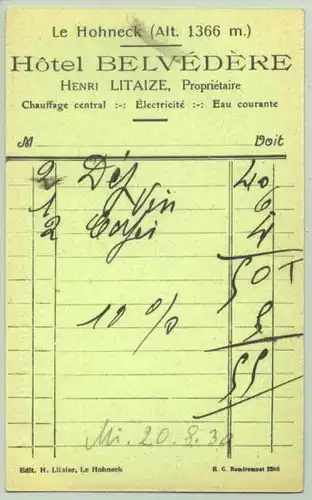 Le Hohneck (Alt. 1366 m.)
Hôtel BELVÉDÈRE
HENRI LITAIZE, Propriétaire
Chauffage central :-: Électricité :-: Eau courante
M Doit
2 Déj 40
1 Vin 6
2 Cafés 4
50 T
10 % 5
55
Mi. 20.8.30
Edit. H. Litaize, Le Hohneck R. C. Remiremont 2266